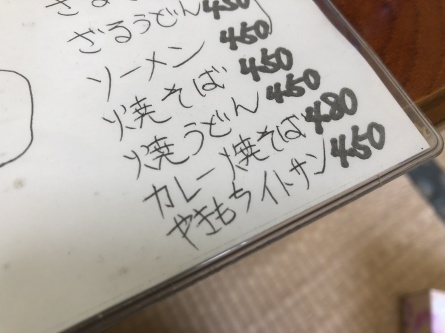 ざるうどん 450
ソーメン 450
焼そば 450
焼うどん 450
カレー焼そば 480
やきもちイトサン 450